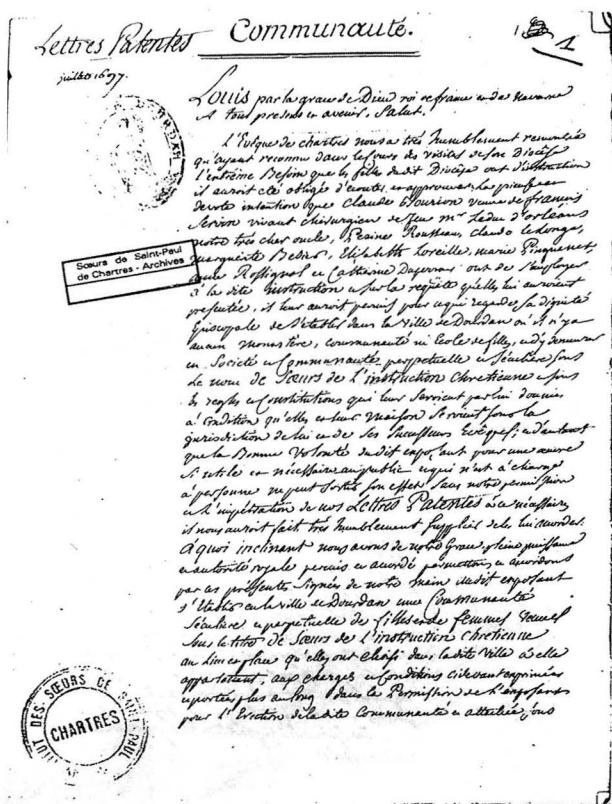 Communauté.
Lettres Patentes
juillet 1697.
1
Louis par la grace de Dieu roi de france et de Navarre
A tous presens et avenir, Salut.
L'Evêque de chartres nous a très humblement remontré
qu'ayant reconnu dans le cours des visites de son Diocèse
l'extrême Besoin que les filles dudit Diocèse ont d'instruction
il auroit été obligé d'écouter et approuver la pieuse et
devote intention que Claude veuve de françois
vivant chirurgien de feu mr. Leduc d'orléans
notre très cher oncle, Rousseau, claude
marguerite Elisabeth marie
Rossignol et Catherine ont de s'employer
à la dite instruction et sur la requête qu'elles lui auroient
presentée, il leur auroit permis pour ce qui regarde sa dignité
Episcopale de s'etablir dans la Ville de Dourdan où il n'y a
aucun monastère, communauté ni Ecole de filles, et d'y demeurer
en Société et Communauté perpetuelle et séculière sous
le nom de Sœurs de L'instruction chretienne et sous
les regles et Constitutions qui leur seroient par lui données
à Condition qu'elles et leur maison seroient sous la
jurisdiction de lui et de ses Successeurs Evêques; et d'autant
que la Bonne Volonté dudit exposant pour une œuvre
si utile et nécessaire au public et qui n'est à charge
à personne ne peut sortir son effet sans notre permission
et l'impétration de nos Lettres Patentes à ce nécessaires
il nous auroit fait très humblement supplier de les lui accorder.
à quoi inclinant nous avons de notre Grace, pleine puissance
et autorité royale permis et accordé permettons et accordons
par ces présentes signées de notre main audit exposant
d'établir en la ville de Dourdan une Communauté
séculière et perpetuelle de filles et de femmes veuves
sous le titre de Sœurs de L'instruction chretienne
au lieu et place qu'elles ont choisi dans la dite Ville à elle
appartenant, aux charges et Conditions ci devant exprimées
et portées plus au long dans la Permission de l'exposant
pour l'Erection de la dite Communauté et attachée sous
Sœurs de Saint-Paul
de Chartres - Archives
DES SŒURS DE SAINT-PAUL
CHARTRES